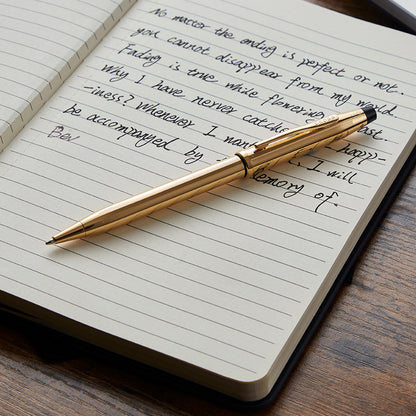 No matter the ending is perfect or not.
you cannot disappear from my world.
Fading is true while flowering
Why I have nerver catche happ-
-iness? Whenever I I will
be accompanyed by memory of.
Bev